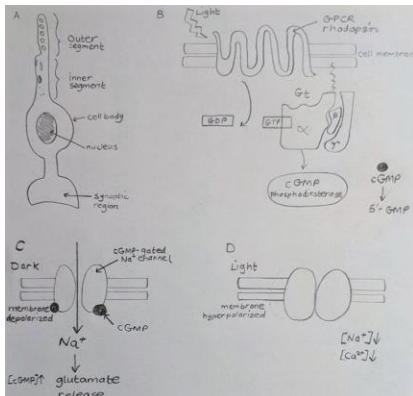 A
Outer
segment
inner
segment
cell body
nucleus
synaptic
region
B
Light
GPCR
rhodapsin
cell membrane
GDP
GTP
Gt
α
β
γ
cGMP
phosphodiesterase
cGMP
5'-GMP
C
Dark
cGMP-gated
Na+ channel
membrane
depolarized
CGMP
Na+
[cGMP]↑
glutamate
release
D
Light
membrane
hyperpolarized
[Na+]↓
[Ca2+]↓